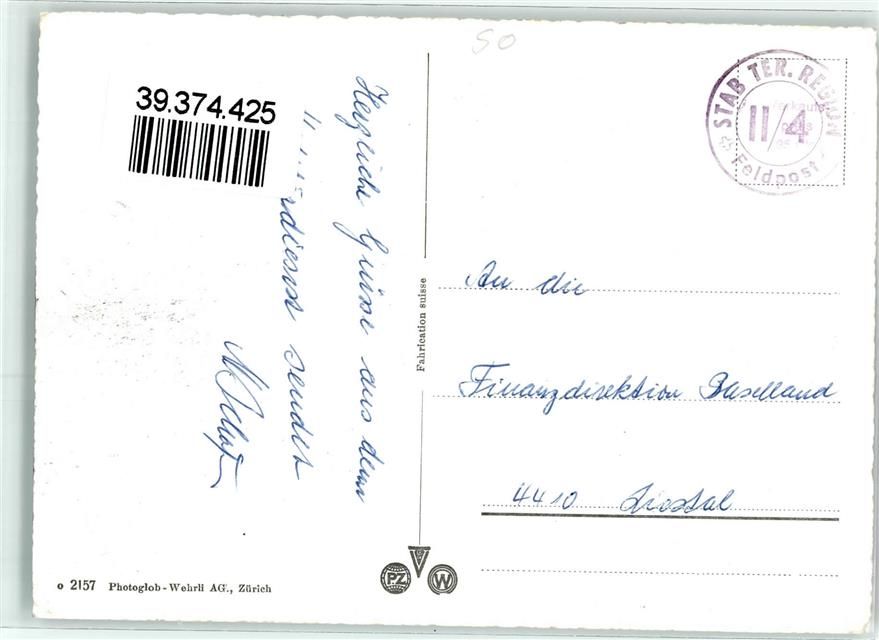 50
39.374.425
Herzliche Grüsse aus dem
sendet
Fabrication suisse
STAB TER. REGION
II/4
Feldpost
An die
Finanzdirektion Baselland
4410 Liestal
o 2157 Photoglob-Wehrli AG., Zürich
PZ
W